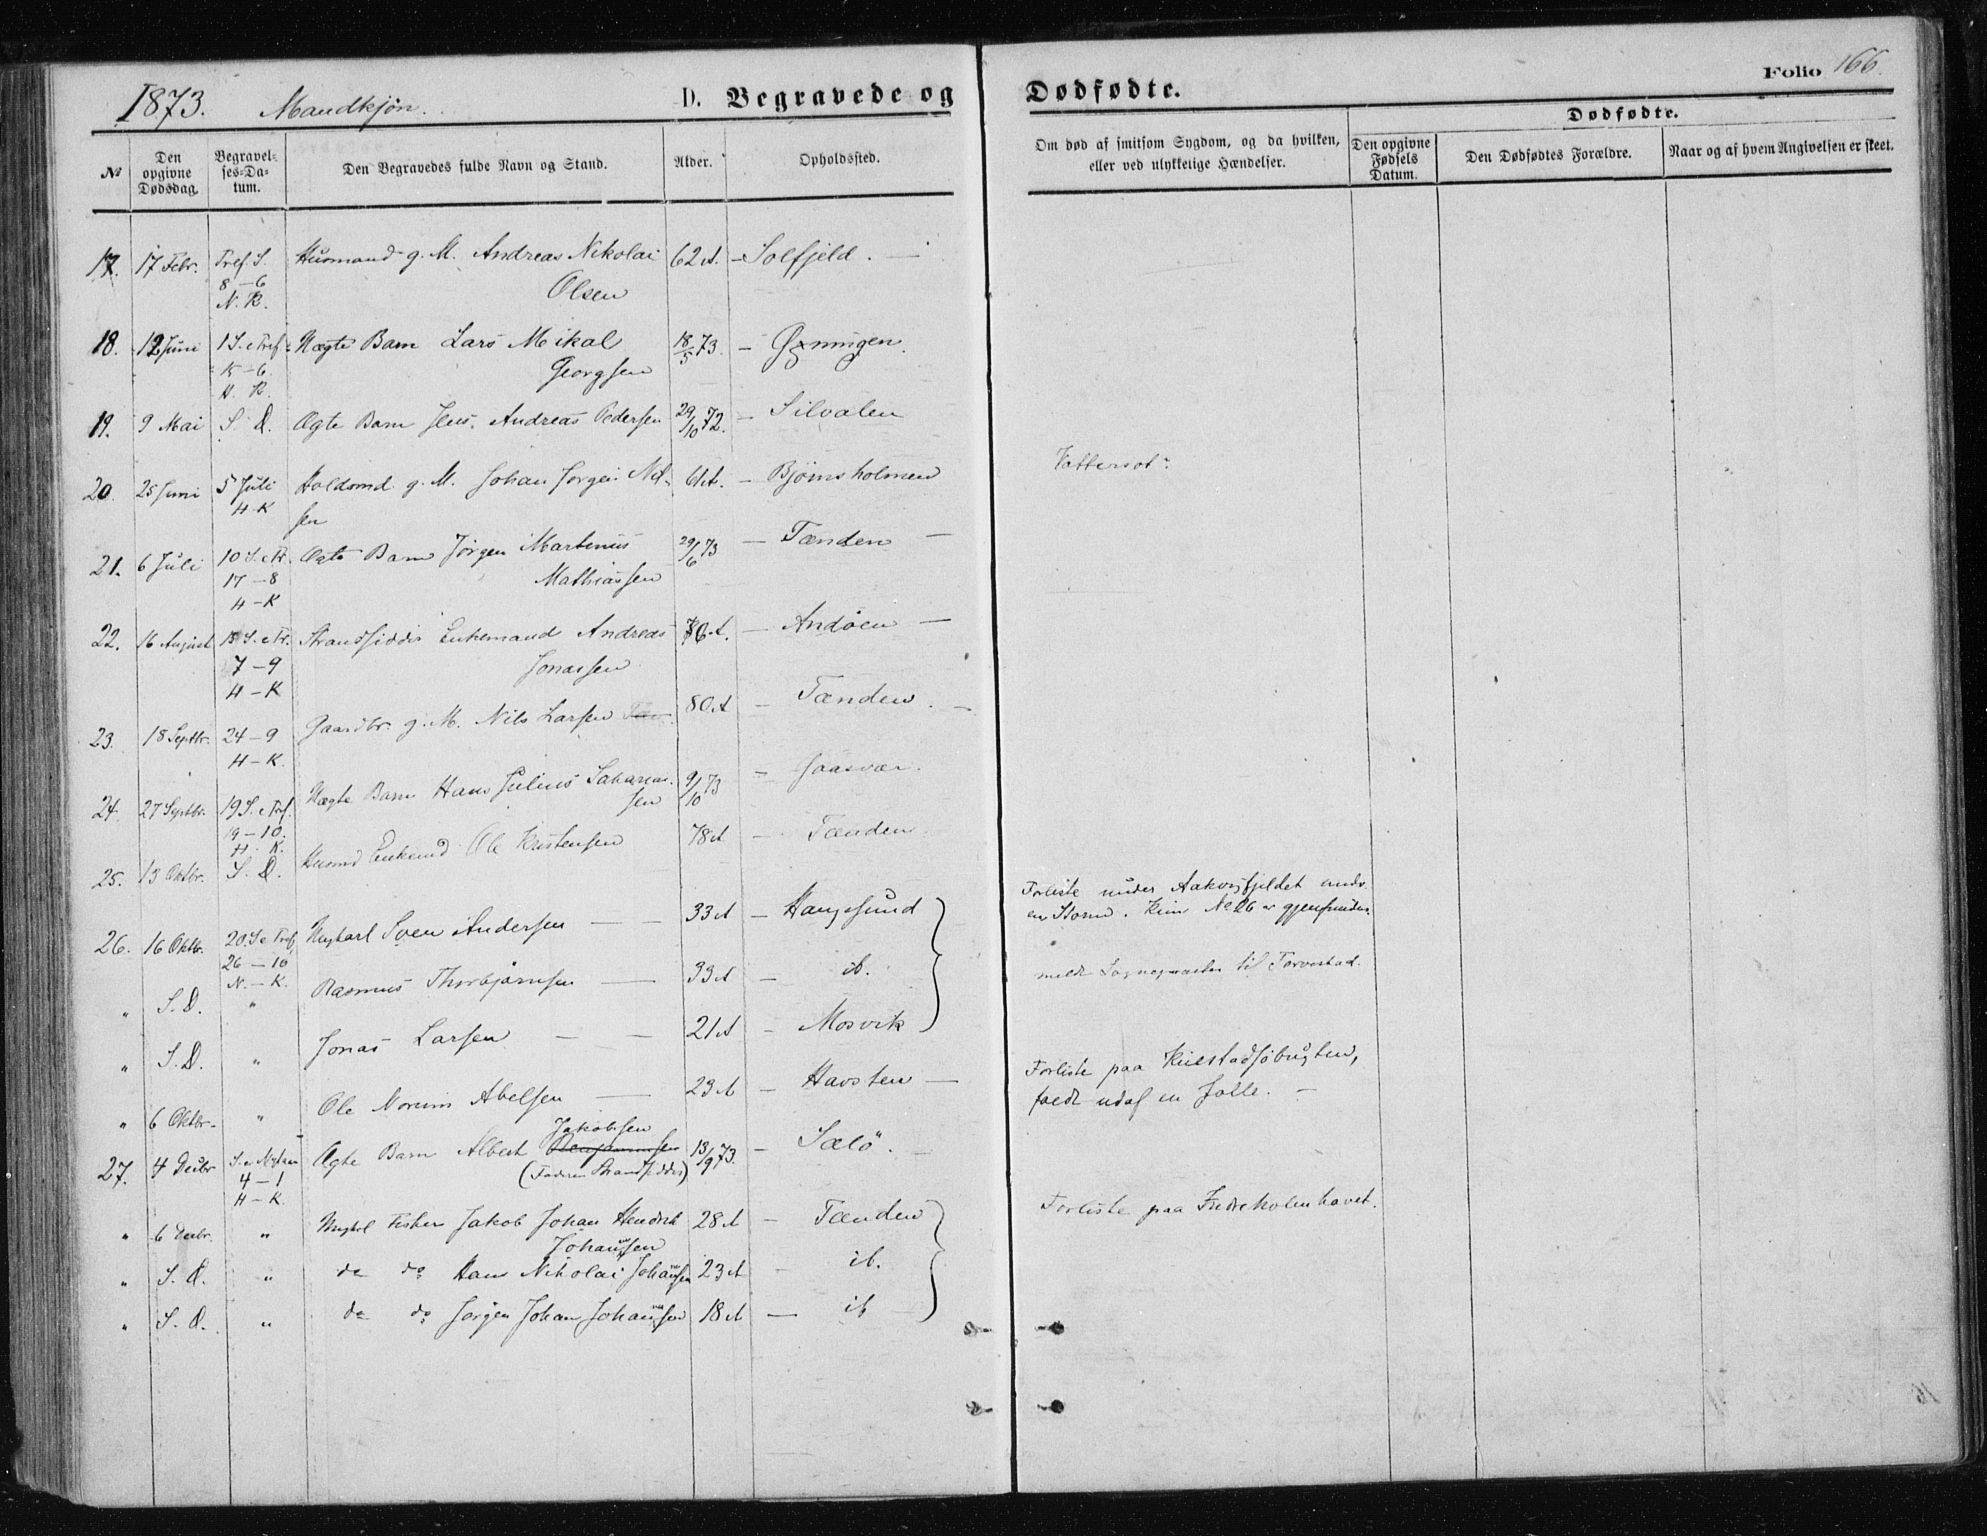 1873. Mandkjøn. D. Begravede og Dødfødte. Folio 166.
№ Den opgivne Dødsdag. Begravelses-Datum. Den Begravedes fulde Navn og Stand. Alder. Opholdssted. Om død af smitsom Sygdom, og da hvilken, eller ved ulykkelige Hændelser. Dødfødte.
Den opgivne Fødsels Datum. Den Dødfødtes Forældre. Naar og af hvem Angivelsen er skeet.
17. 17 Febr. Tref. S. Husmand g. M. Andreas Nikolai 62 A. – Solfjeld. –
8 – 6 Olsen
N. K.
18. 12 Juni 1 S. e Tref. Uægte Barn Lars Mikal 18/5 73. – Øxningen.
15 – 6 Georgsen
H. K.
19. 9 Mai S. D. Ægte Barn Jens Andreas Pedersen 29/10 72. – Silvalen
20. 25 Juni 5 Juli Holdsmd g. M. Johan Jørgen Nil- 61 A. – Bjørnsholmen Vattersot.
H – K sen
21. 6 Juli 10 S. e Tr. Ægte Barn Jørgen Martinus 29/6 73 – Tænden –
17 – 8 Mathiassen
H – K
22. 16 August 13 S. e Tr. Strandsidder Enkemand Andreas 76 A. – Andøen –
7 – 9 Jonassen
H – K
23. 18 Septbr. 24 – 9 Gaardbr. g. M. Nils Larsen 80 A – Tænden. –
H – K.
24. 27 Septbr. 19 S. e Tref. Uægte Barn Hans Julius Sakarias- 9/10 73 – Gaasvær.
19 – 10. sen
H. K.
25. 13 Oktbr. S. D. Husmd Enkemd Ole Kristensen 78 A – Tænden.
26. 16 Oktbr. 20 S. e Tref. Ungkarl Sven Andersen – 33 A – Haugesund Forliste under Aakvigfjeldet under
26 – 10 en Storm. Kun No 26 er gjenfunden.
N. – K.
" S. D. " Rasmus Thorbjørnsen – 33 A – ib. meldt Sognepræsten til Torvestad.
" S. D. " Jonas Larsen – – 21 A – Mosvik
" 6 Oktbr. " Ole Norum Abelsen – 23 A – Havsten – Forliste paa Kilstadsøbugten,
faldt udaf en Jolle. –
Jakobsen
27. 4 Decbr S. e Nytaar Ægte Barn Albert Benjaminsen 13/9 73. – Sælø. –
4 – 1 (Faderen Strandsidder)
H – K.
" 6 Decbr. " Ungkl Fisker Jakob Johan Hendrik 28 A – Tænden Forliste paa Indreholmhavet.
Johannsen
" S. D. " do do Hans Nikolai Johannsen 23 A – ib.
" S. D. " do do Jørgen Johan Johannsen 18 A – ib